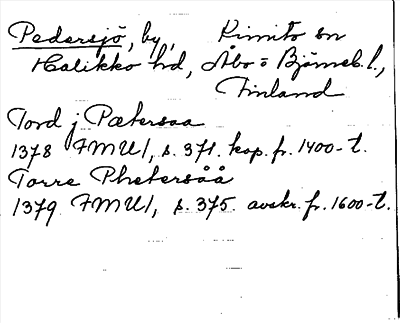 Pedersjö, by, Kimito sn
Halikko hd, Åbo o Björneb. l.,
Finland
Tord j Pætersaa
1378 FMU I, s. 371. kop. fr. 1400-t.
Torre Phetersåå
1379 FMU I, s. 375 avskr. fr. 1600-t.